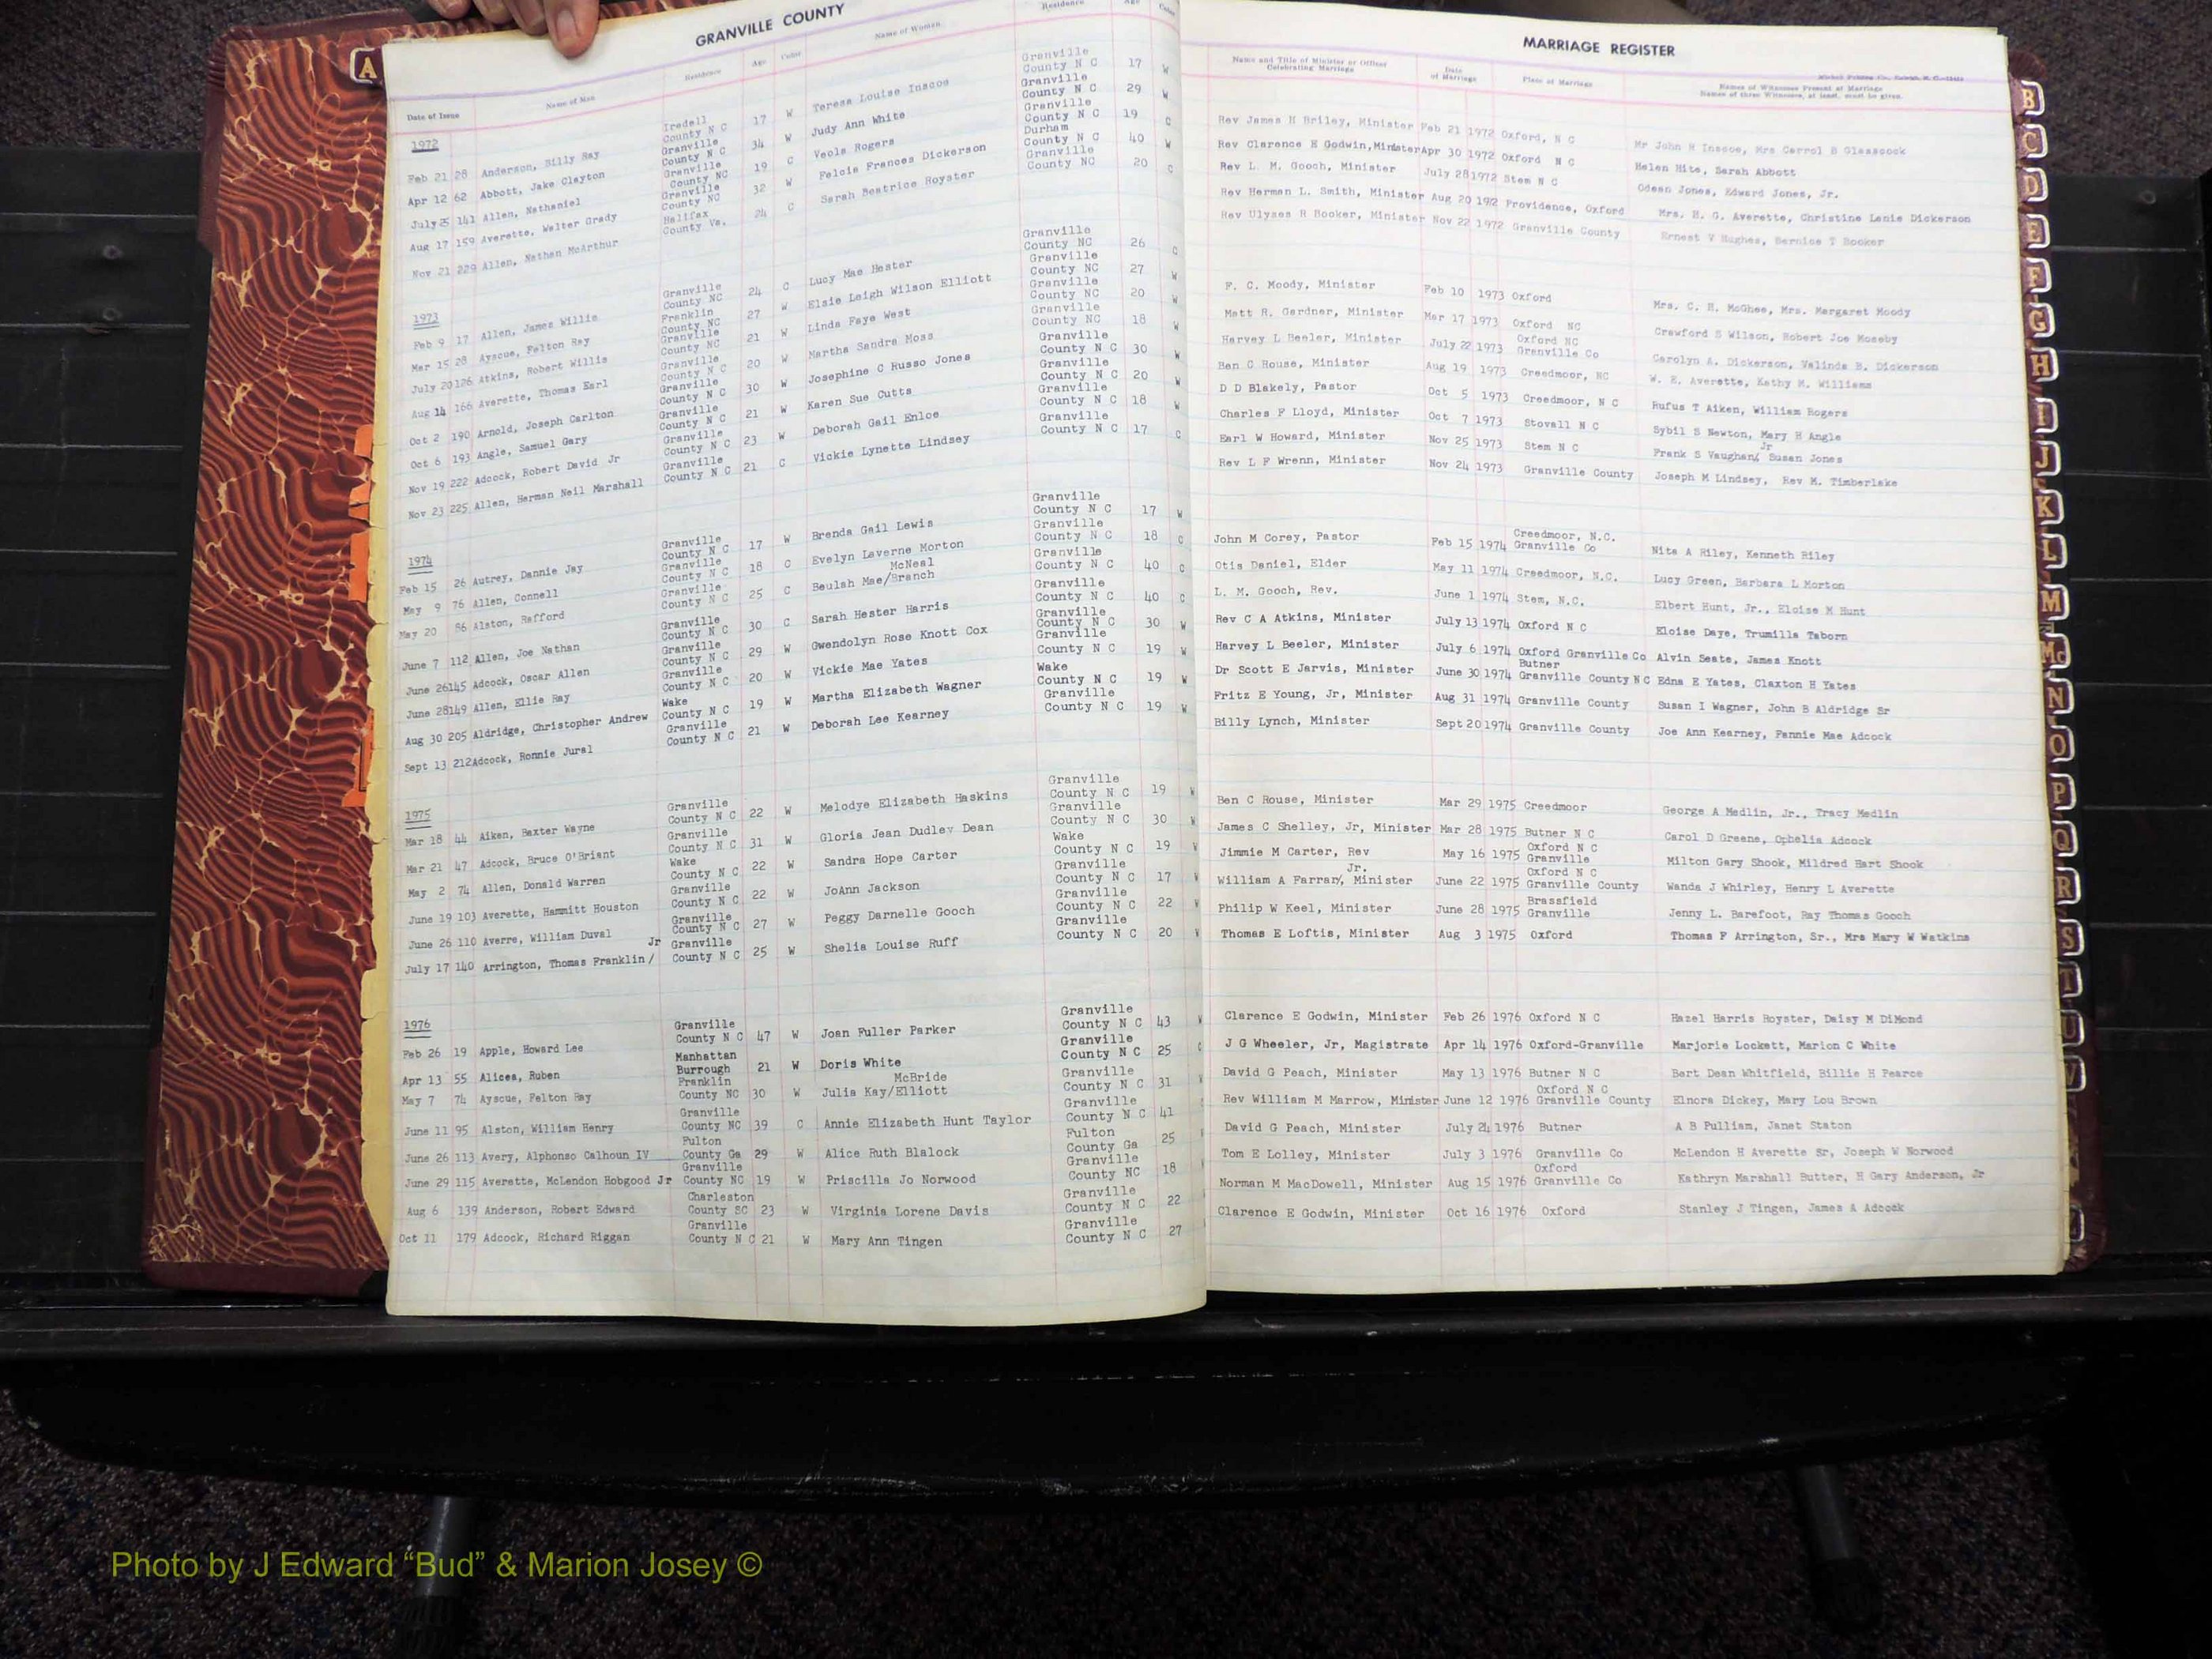 GRANVILLE COUNTY
MARRIAGE REGISTER
A
Date of Issue Name of Man Residence Age Color Name of Woman Residence Age Color
Name and Title of Minister or Officer Celebrating Marriage Date of Marriage Place of Marriage Names of Witnesses Present at Marriage Names of three Witnesses, at least, must be given.
1972
Feb 21 28 Anderson, Billy Ray Iredell County N C 17 W Teresa Louise Inscoe Granville County N C 17 W Rev James H Briley, Minister Feb 21 1972 Oxford, N C Mr John R Inscoe, Mrs Carrol B Glasscock
Apr 12 62 Abbott, Jake Clayton Granville County N C 34 W Judy Ann White Granville County N C 29 W Rev Clarence E Godwin, Minister Apr 30 1972 Oxford N C Helen Hite, Sarah Abbott
July 25 141 Allen, Nathaniel Granville County NC 19 C Veola Rogers Granville County N C 19 C Rev L. M. Gooch, Minister July 28 1972 Stem N C Odean Jones, Edward Jones, Jr.
Aug 17 159 Averette, Walter Grady Granville County NC 32 W Felcia Frances Dickerson Durham County N C 40 W Rev Herman L. Smith, Minister Aug 20 1972 Providence, Oxford Mrs. H. G. Averette, Christine Lanie Dickerson
Nov 21 229 Allen, Nathan McArthur Halifax County Va. 24 C Sarah Beatrice Royster Granville County NC 20 C Rev Ulyses H Booker, Minister Nov 22 1972 Granville County Ernest V Hughes, Bernice T Booker
1973
Feb 9 17 Allen, James Willie Granville County NC 24 C Lucy Mae Hester Granville County NC 26 C F. C. Moody, Minister Feb 10 1973 Oxford Mrs. C. H. McGhee, Mrs. Margaret Moody
Mar 15 28 Ayscue, Felton Ray Franklin County NC 27 W Elsie Leigh Wilson Elliott Granville County NC 27 W Matt R. Gardner, Minister Mar 17 1973 Oxford NC Crawford S Wilson, Robert Joe Moseby
July 20 126 Atkins, Robert Willis Granville County NC 21 W Linda Faye West Granville County NC 20 W Harvey L Beeler, Minister July 22 1973 Oxford NC Granville Co Carolyn A. Dickerson, Valinda B. Dickerson
Aug 14 166 Averette, Thomas Earl Granville County N C 20 W Martha Sandra Moss Granville County NC 18 W Ben C Rouse, Minister Aug 19 1973 Creedmoor, NC W. E. Averette, Kathy M. Williams
Oct 2 190 Arnold, Joseph Carlton Granville County N C 30 W Josephine C Russo Jones Granville County N C 30 W D D Blakely, Pastor Oct 5 1973 Creedmoor, N C Rufus T Aiken, William Rogers
Oct 6 193 Angle, Samuel Gary Granville County N C 21 W Karen Sue Cutts Granville County N C 20 W Charles F Lloyd, Minister Oct 7 1973 Stovall N C Sybil S Newton, Mary H Angle
Nov 19 222 Adcock, Robert David Jr Granville County N C 23 W Deborah Gail Enloe Granville County N C 18 W Earl W Howard, Minister Nov 25 1973 Stem N C Frank S Vaughan/ Jr Susan Jones
Nov 23 225 Allen, Herman Neil Marshall Granville County N C 21 C Vickie Lynette Lindsey Granville County N C 17 C Rev L F Wrenn, Minister Nov 24 1973 Granville County Joseph M Lindsey, Rev M. Timberlake
1974
Feb 15 26 Autrey, Dannie Jay Granville County N C 17 W Brenda Gail Lewis Granville County N C 17 W John M Corey, Pastor Feb 15 1974 Creedmoor, N.C. Granville Co Nita A Riley, Kenneth Riley
May 9 76 Allen, Connell Granville County N C 18 C Evelyn Laverne Morton Granville County N C 18 C Otis Daniel, Elder May 11 1974 Creedmoor, N.C. Lucy Green, Barbara L Morton
May 20 86 Alston, Rafford Granville County N C 25 C Beulah Mae/McNeal Branch Granville County N C 40 C L. M. Gooch, Rev. June 1 1974 Stem, N.C. Elbert Hunt, Jr., Eloise M Hunt
June 7 112 Allen, Joe Nathan Granville County N C 30 C Sarah Hester Harris Granville County N C 40 C Rev C A Atkins, Minister July 13 1974 Oxford N C Eloise Daye, Trumilla Taborn
June 26 145 Adcock, Oscar Allen Granville County N C 29 W Gwendolyn Rose Knott Cox Granville County N C 30 W Harvey L Beeler, Minister July 6 1974 Oxford Granville Co Alvin Seate, James Knott
June 28 149 Allen, Ellie Ray Granville County N C 20 W Vickie Mae Yates Granville County N C 19 W Dr Scott E Jarvis, Minister June 30 1974 Butner Granville County N C Edna E Yates, Claxton H Yates
Aug 30 205 Aldridge, Christopher Andrew Wake County N C 19 W Martha Elizabeth Wagner Wake County N C 19 W Fritz E Young, Jr, Minister Aug 31 1974 Granville County Susan I Wagner, John B Aldridge Sr
Sept 13 212 Adcock, Ronnie Jural Granville County N C 21 W Deborah Lee Kearney Granville County N C 19 W Billy Lynch, Minister Sept 20 1974 Granville County Joe Ann Kearney, Fannie Mae Adcock
1975
Mar 18 44 Aiken, Baxter Wayne Granville County N C 22 W Melodye Elizabeth Haskins Granville County N C 19 W Ben C Rouse, Minister Mar 29 1975 Creedmoor George A Medlin, Jr., Tracy Medlin
Mar 21 47 Adcock, Bruce O'Briant Granville County N C 31 W Gloria Jean Dudley Dean Granville County N C 30 W James C Shelley, Jr, Minister Mar 28 1975 Butner N C Carol D Greene, Ophelia Adcock
May 2 74 Allen, Donald Warren Wake County N C 22 W Sandra Hope Carter Wake County N C 19 W Jimmie M Carter, Rev May 16 1975 Oxford N C Granville Milton Gary Shook, Mildred Hart Shook
June 19 103 Averette, Hammitt Houston Granville County N C 22 W JoAnn Jackson Granville County N C 17 W William A Farrar/ Jr., Minister June 22 1975 Oxford N C Granville County Wanda J Whirley, Henry L Averette
June 26 110 Averre, William Duval Granville County N C 27 W Peggy Darnelle Gooch Granville County N C 22 W Philip W Keel, Minister June 28 1975 Brassfield Granville Jenny L. Barefoot, Ray Thomas Gooch
July 17 140 Arrington, Thomas Franklin/ Jr Granville County N C 25 W Shelia Louise Ruff Granville County N C 20 W Thomas E Loftis, Minister Aug 3 1975 Oxford Thomas F Arrington, Sr., Mrs Mary W Watkins
1976
Feb 26 19 Apple, Howard Lee Granville County N C 47 W Joan Fuller Parker Granville County N C 43 Clarence E Godwin, Minister Feb 26 1976 Oxford N C Hazel Harris Royster, Daisy M DiMond
Apr 13 55 Alicea, Ruben Manhattan Burrough 21 W Doris White Granville County N C 25 C J G Wheeler, Jr, Magistrate Apr 14 1976 Oxford-Granville Marjorie Lockett, Marion C White
May 7 74 Ayscue, Felton Ray Franklin County NC 30 W Julia Kay/McBride Elliott Granville County N C 31 David G Peach, Minister May 13 1976 Butner N C Bert Dean Whitfield, Billie H Pearce
June 11 95 Alston, William Henry Granville County NC 39 C Annie Elizabeth Hunt Taylor Granville County N C 41 Rev William M Marrow, Minister June 12 1976 Oxford N C Granville County Elnora Dickey, Mary Lou Brown
June 26 113 Avery, Alphonso Calhoun IV Fulton County Ga 29 W Alice Ruth Blalock Fulton County Ga 25 David G Peach, Minister July 24 1976 Butner A B Pulliam, Janet Staton
June 29 115 Averette, McLendon Hobgood Jr Granville County NC 19 W Priscilla Jo Norwood Granville County NC 18 Tom E Lolley, Minister July 3 1976 Granville Co McLendon H Averette Sr, Joseph W Norwood
Aug 6 139 Anderson, Robert Edward Charleston County SC 23 W Virginia Lorene Davis Granville County N C 22 Norman M MacDowell, Minister Aug 15 1976 Oxford Granville Co Kathryn Marshall Butter, H Gary Anderson, Jr
Oct 11 179 Adcock, Richard Riggan Granville County N C 21 W Mary Ann Tingen Granville County N C 27 Clarence E Godwin, Minister Oct 16 1976 Oxford Stanley J Tingen, James A Adcock
B
C
D
E
F
G
H
I
J
K
L
M
Mc
N
O
P
Q
R
S
T
U
V
Photo by J Edward “Bud” & Marion Josey ©